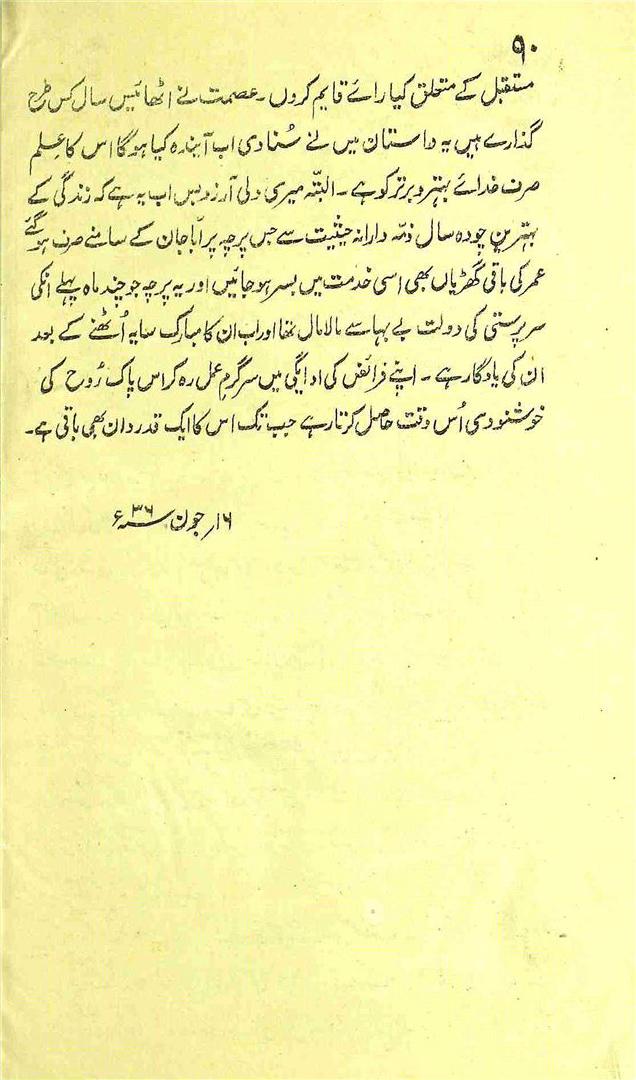 ۹۰
مستقبل کے متعلق کیا رائے قایم کروں۔ عصمت نے اٹھائیس سال کس طرح
گذارے ہیں یہ داستان میں نے سُنا دی اب آیندہ کیا ہوگا اس کا عِلم
صرف خدائے بہتر و برتر کو ہے۔ البتّہ میری دلی آرزو بس اب یہ ہے کہ زندگی کے
بہترین چودہ سال ذمّہ دارانہ حیثیت سے جس پرچہ پر اباجان کے سامنے صرف ہو گئے
عمر کی باقی گھڑیاں بھی اسی خدمت میں بسر ہو جائیں اور یہ پرچہ جو چند ماہ پہلے انکی
سرپرستی کی دولت بے بہا سے مالا مال تھا اور اب ان کا مبارک سایہ اُٹھنے کے بعد
ان کی یادگار ہے۔ اپنے فرائض کی ادایگی میں سرگرم عمل رہ کر اس پاک رُوح کی
خوشنودی اُس وقت حاصل کرتا رہے جب تک اس کا ایک قدردان بھی باقی ہے۔
۱۶ر جون ۳۶ء